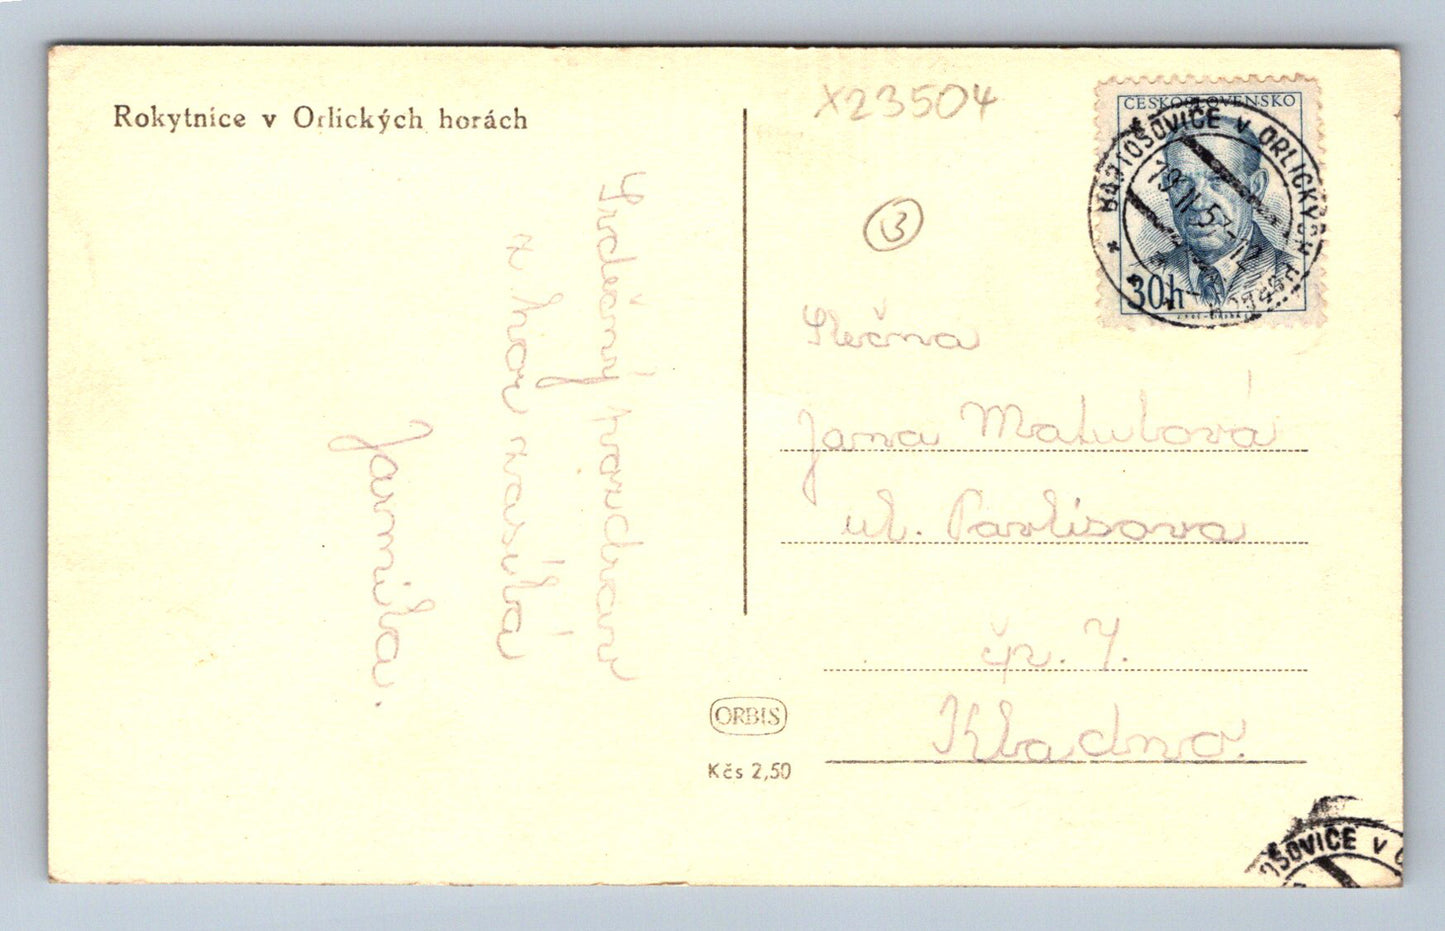 Rokytnice v Orlických horách
X23504
3
ČESKOSLOVENSKO
30h
BARTOŠOVICE V ORLICKÝCH
Srdečný pozdrav
z hor zasílá
Jarmila.
Slečna
Jana Matulová
ul. Pavlisova
čp. 7.
Kladno.
ORBIS
Kčs 2,50
OŠOVICE V